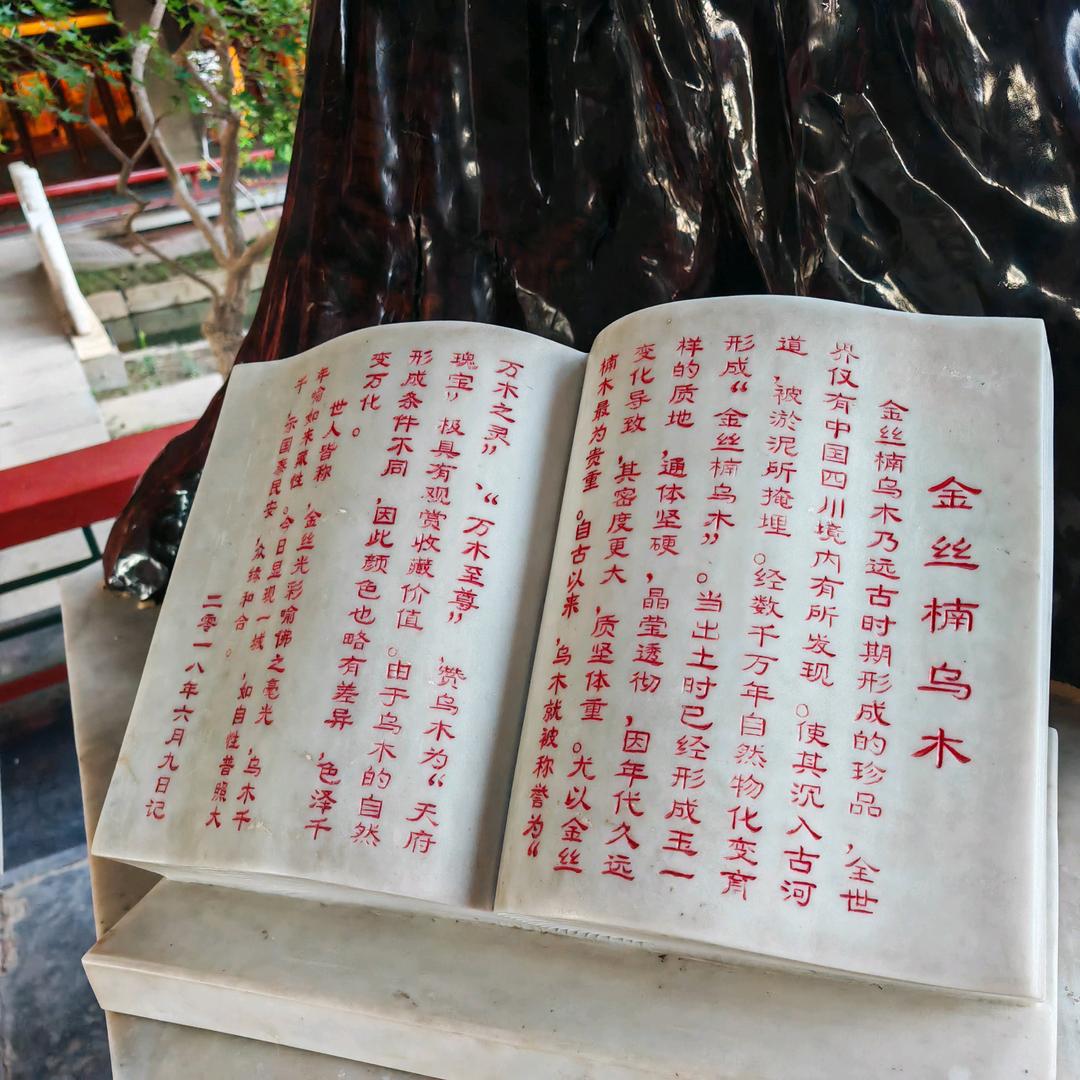 金丝楠乌木
金丝楠乌木乃远古时期形成的珍品，全世
界仅有中国四川境内有所发现。使其沉入古河
道，被淤泥所掩埋。经数千万年自然物化变育
形成“金丝楠乌木”。当出土时已经形成玉一
样的质地，通体坚硬，晶莹透彻，因年代久远
变化导致，其密度更大，质坚体重。尤以金丝
楠木最为贵重。自古以来，乌木就被称誉为“
万木之灵”、“万木至尊”，赞乌木为“天府
瑰宝”极具有观赏收藏价值。由于乌木的自然
形成条件不同，因此颜色也略有差异，色泽千
变万化。
世人皆称，金丝光彩喻佛之毫光，乌木千
年喻如来藏性。今日显现一城，如自性普照大
千，示国泰民安，众缘和合。
二零一八年六月九日记